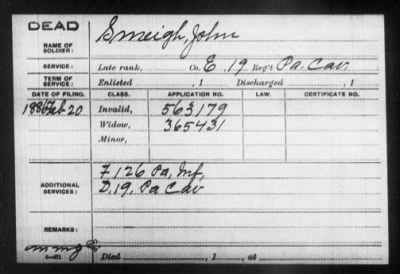 DEAD
NAME OF SOLDIER: Smeigh, John
SERVICE: Late rank, Co. E, 19 Reg't Pa. Cav.
TERM OF SERVICE: Enlisted , 1 Discharged , 1
DATE OF FILING. CLASS. APPLICATION NO. LAW. CERTIFICATE NO.
Feb 20 Invalid, 563179
Widow, 365431
Minor,
ADDITIONAL SERVICES: F, 126 Pa, Inf,
D, 19, Pa Cav
REMARKS:
Died , 1 , at